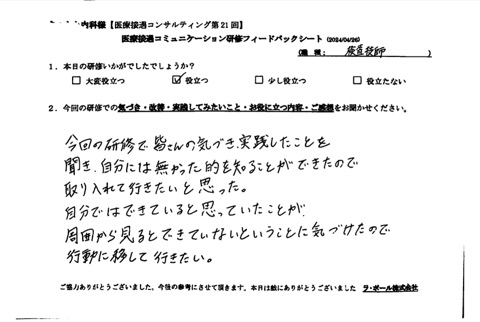 内科様【医療接遇コンサルティング第21回】
医療接遇コミュニケーション研修フィードバックシート(2024/04/26)
(職種: 検査技師)
1.本日の研修いかがでしたでしょうか?
□大変役立つ ☑役立つ □少し役立つ □役立たない
2.今回の研修での気づき・改善・実践してみたいこと・お役に立つ内容・ご感想をお聞かせください。
今回の研修で皆さんの気づき、実践したことを
聞き、自分には無かった的を知ることができたので
取り入れて行きたいと思った。
自分ではできていると思っていたことが
周囲から見るとできていないということに気づけたので
行動に移して行きたい。
ご協力ありがとうございました。今後の参考にさせて頂きます。本日は誠にありがとうございました ラ・ポール株式会社